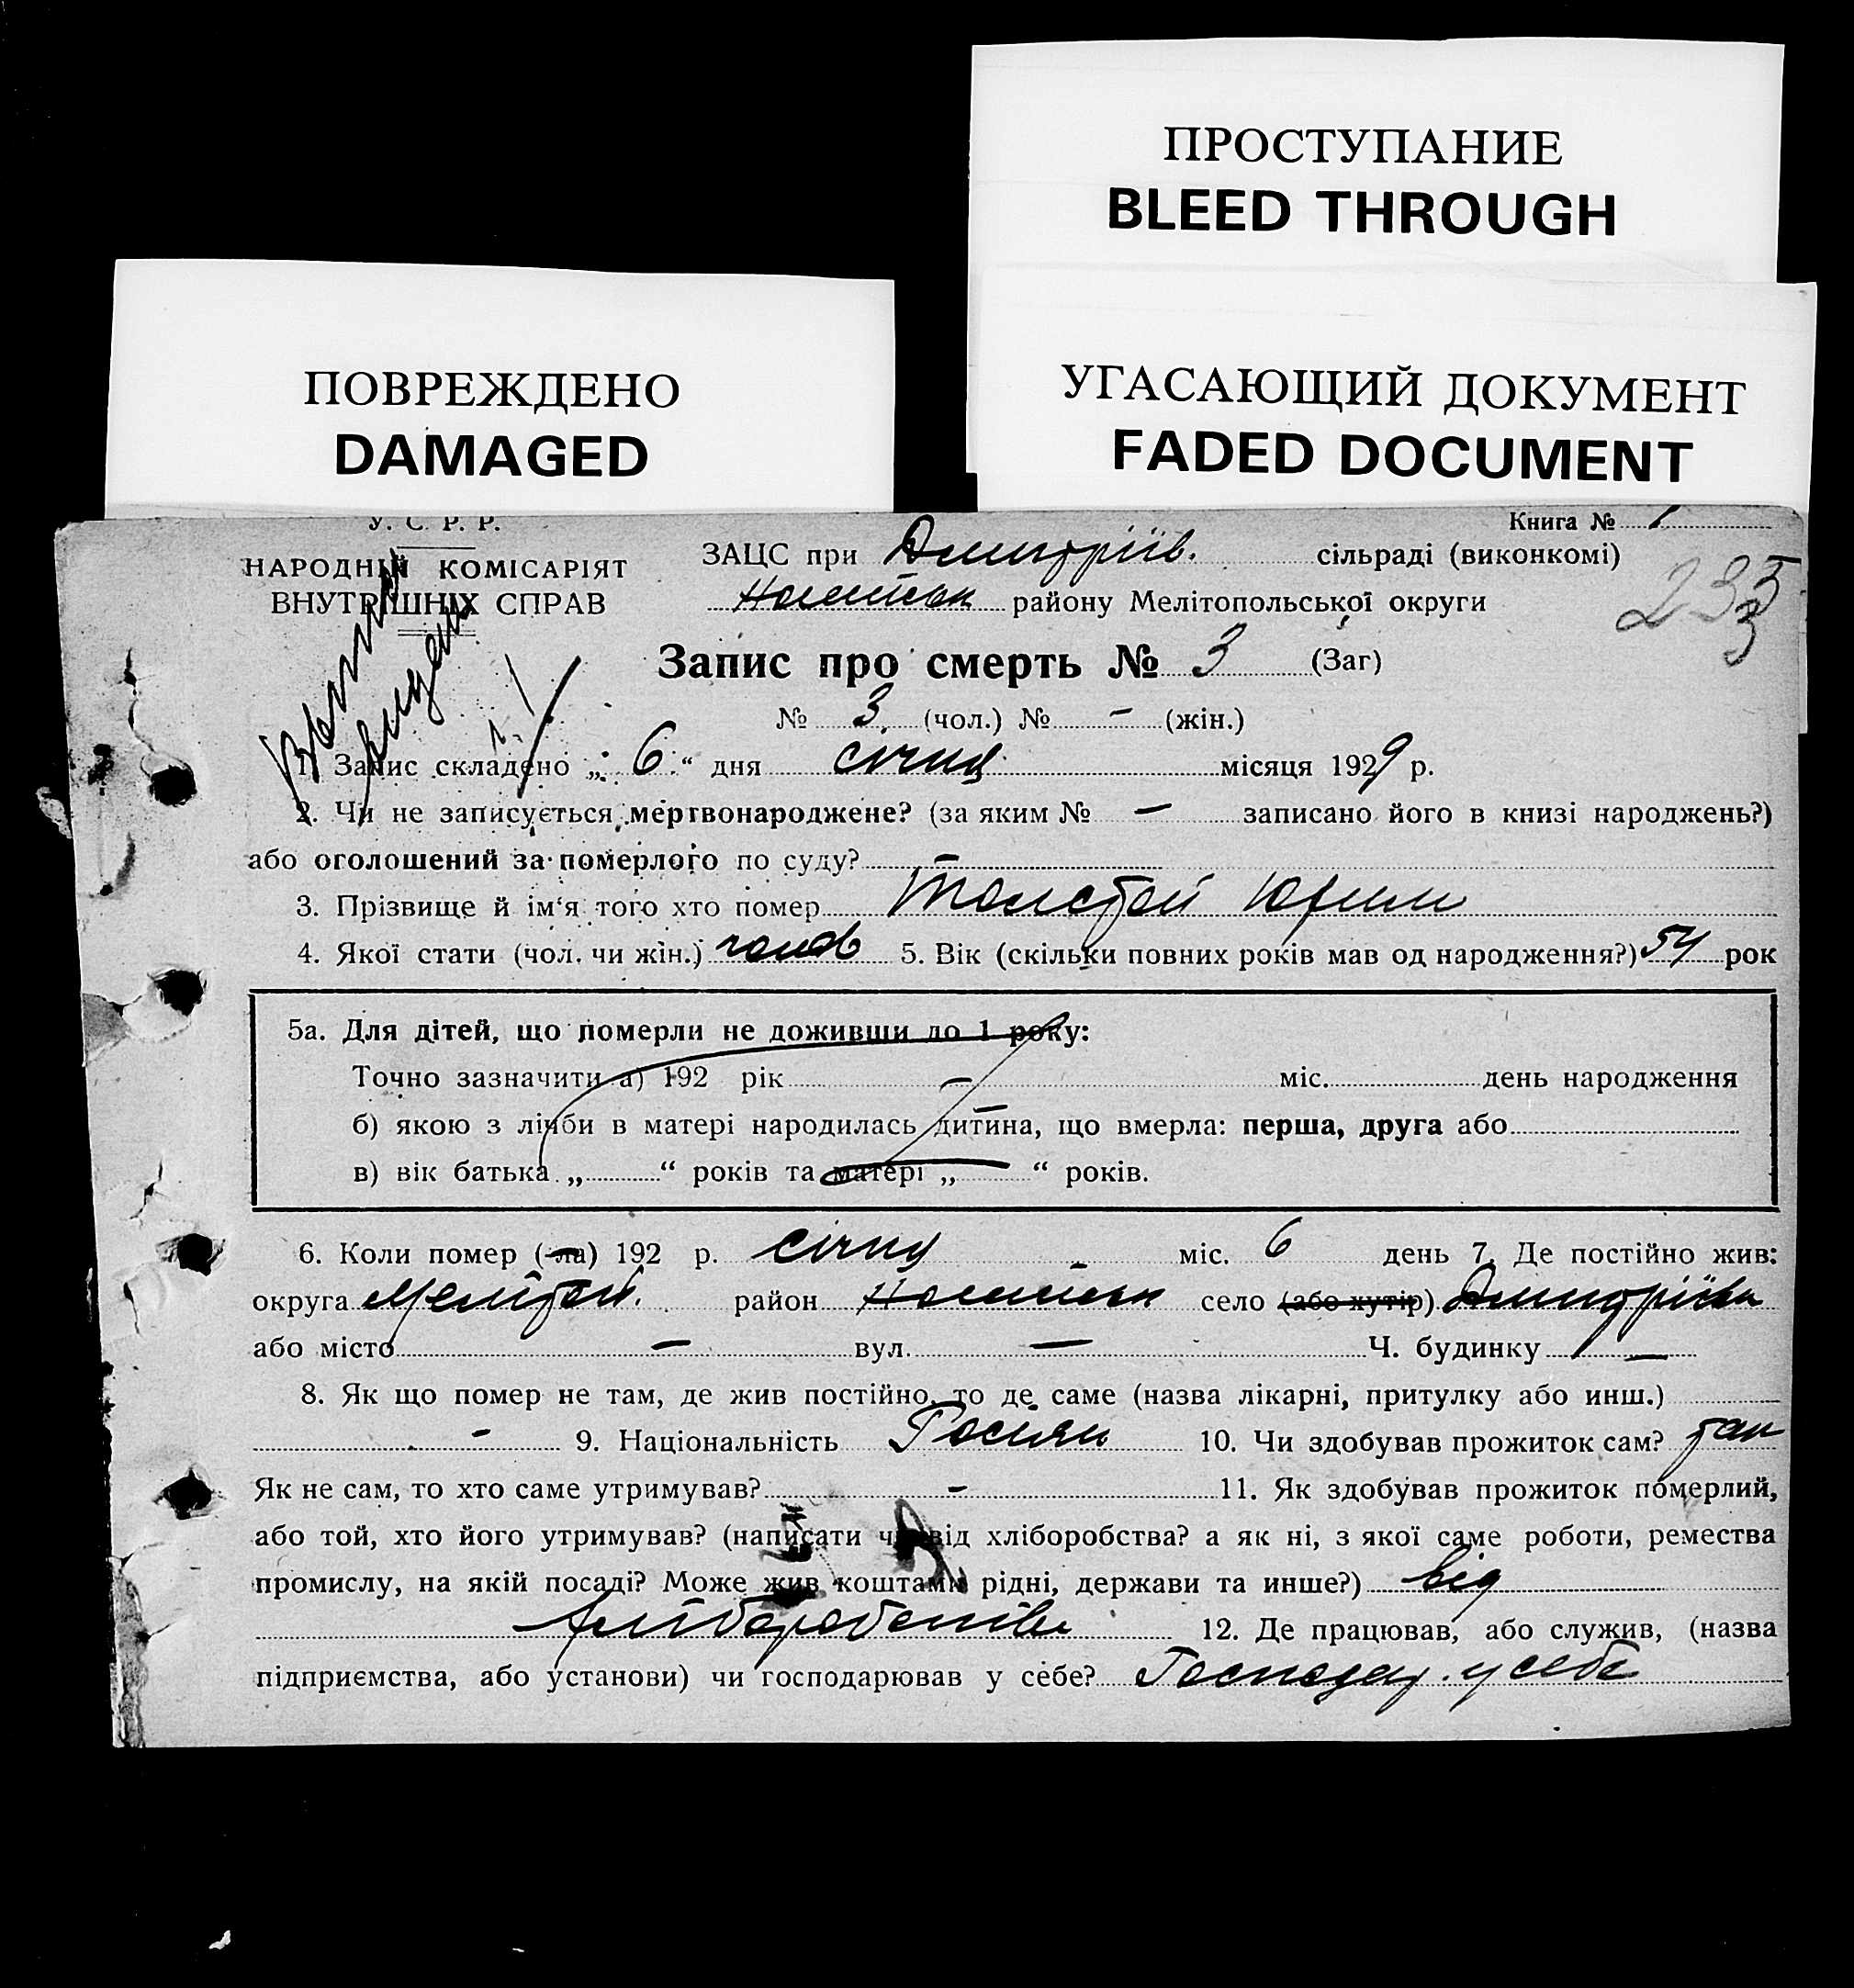 ПРОСТУПАНИЕ
BLEED THROUGH
ПОВРЕЖДЕНО
DAMAGED
УГАСАЮЩИЙ ДОКУМЕНТ
FADED DOCUMENT
У. С. Р. Р.
НАРОДНІЙ КОМІСАРІЯТ
ВНУТРІШНІХ СПРАВ
Книга № 1
ЗАЦС при Дмитріїв. сільраді (виконкомі)
району Мелітопольської округи
233
3
Запис про смерть № 3 (Заг)
№ 3 (чол.) № - (жін.)
1. Запис складено „ 6 “ дня січня місяця 1929 р.
2. Чи не записується мертвонароджене? (за яким № — записано його в книзі народжень?)
або оголошений за померлого по суду? —
3. Прізвище й ім‘я того хто помер Толстой Юхим
4. Якої стати (чол. чи жін.) чолов 5. Вік (скільки повних років мав од народження?) 54 рок
5а. Для дітей, що померли не доживши до 1 року:
Точно зазначити а) 192 рік — міс. день народження
б) якою з лічби в матері народилась дитина, що вмерла: перша, друга або
в) вік батька „ “ років та матері „ “ років.
6. Коли помер (-ла) 192 р. січня міс. 6 день 7. Де постійно жив:
округа Мелітоп. район село (або хутір) Дмитріївка
або місто — вул. — Ч. будинку —
8. Як що помер не там, де жив постійно, то де саме (назва лікарні, притулку або инш.)
- 9. Національність Росіян 10. Чи здобував прожиток сам? так
Як не сам, то хто саме утримував? - 11. Як здобував прожиток померлий,
або той, хто його утримував? (написати чи від хліборобства? а як ні, з якої саме роботи, ремества
промислу, на якій посаді? Може жив коштами рідні, держави та инше?) від
хліборобства 12. Де працював, або служив, (назва
підприємства, або установи) чи господарював у себе? Господар. у себе